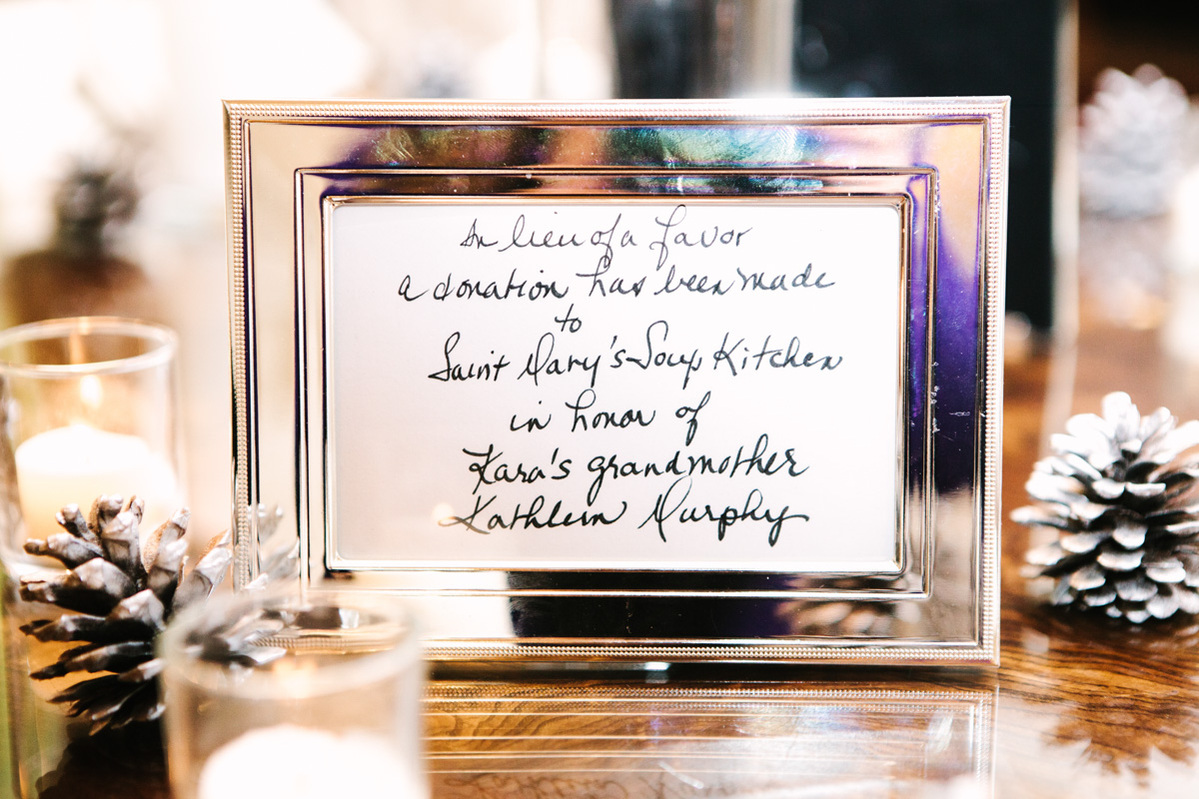 In lieu of a favor
a donation has been made
to
Saint Mary's Soup Kitchen
in honor of
Kara's grandmother
Kathleen Murphy